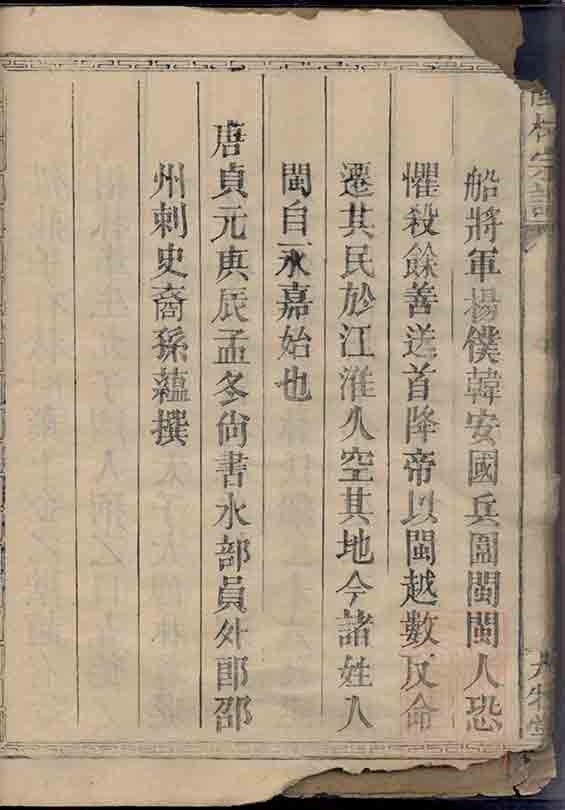 船將軍楊僕韓安國兵圍閩閩人恐
懼殺餘善送首降帝以閩越數反命
遷其民於江淮久空其地今諸姓入
閩自永嘉始也
唐貞元庚辰孟冬尙書水部員外郎邵
州刺史裔孫蘊撰